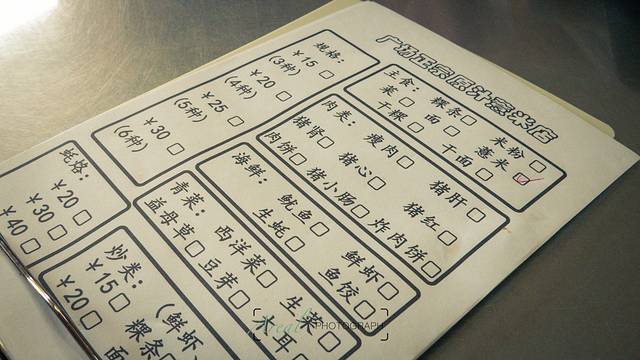 广场正宗原汁薏米店
主食: 粿条□ 米粉□
菜□ 面□ 薏米□
干粿□ 干面□
规格:
¥15□ (3种)
¥20□ (4种)
¥25□ (5种)
¥30□ (6种)
肉类: 瘦肉□ 猪肝□
猪肾□ 猪心□ 猪红□
肉饼□ 猪小肠□ 炸肉饼□
海鲜: 鱿鱼□ 鲜虾□
生蚝□ 鱼饺□
青菜: 西洋菜□ 生菜□
益母草□ 豆芽□ 耳□
蚝烙:
¥20□
¥30□
¥40□
炒类: (鲜虾
¥15□ 粿条□
¥20□ 面
PHOTOGRAPH